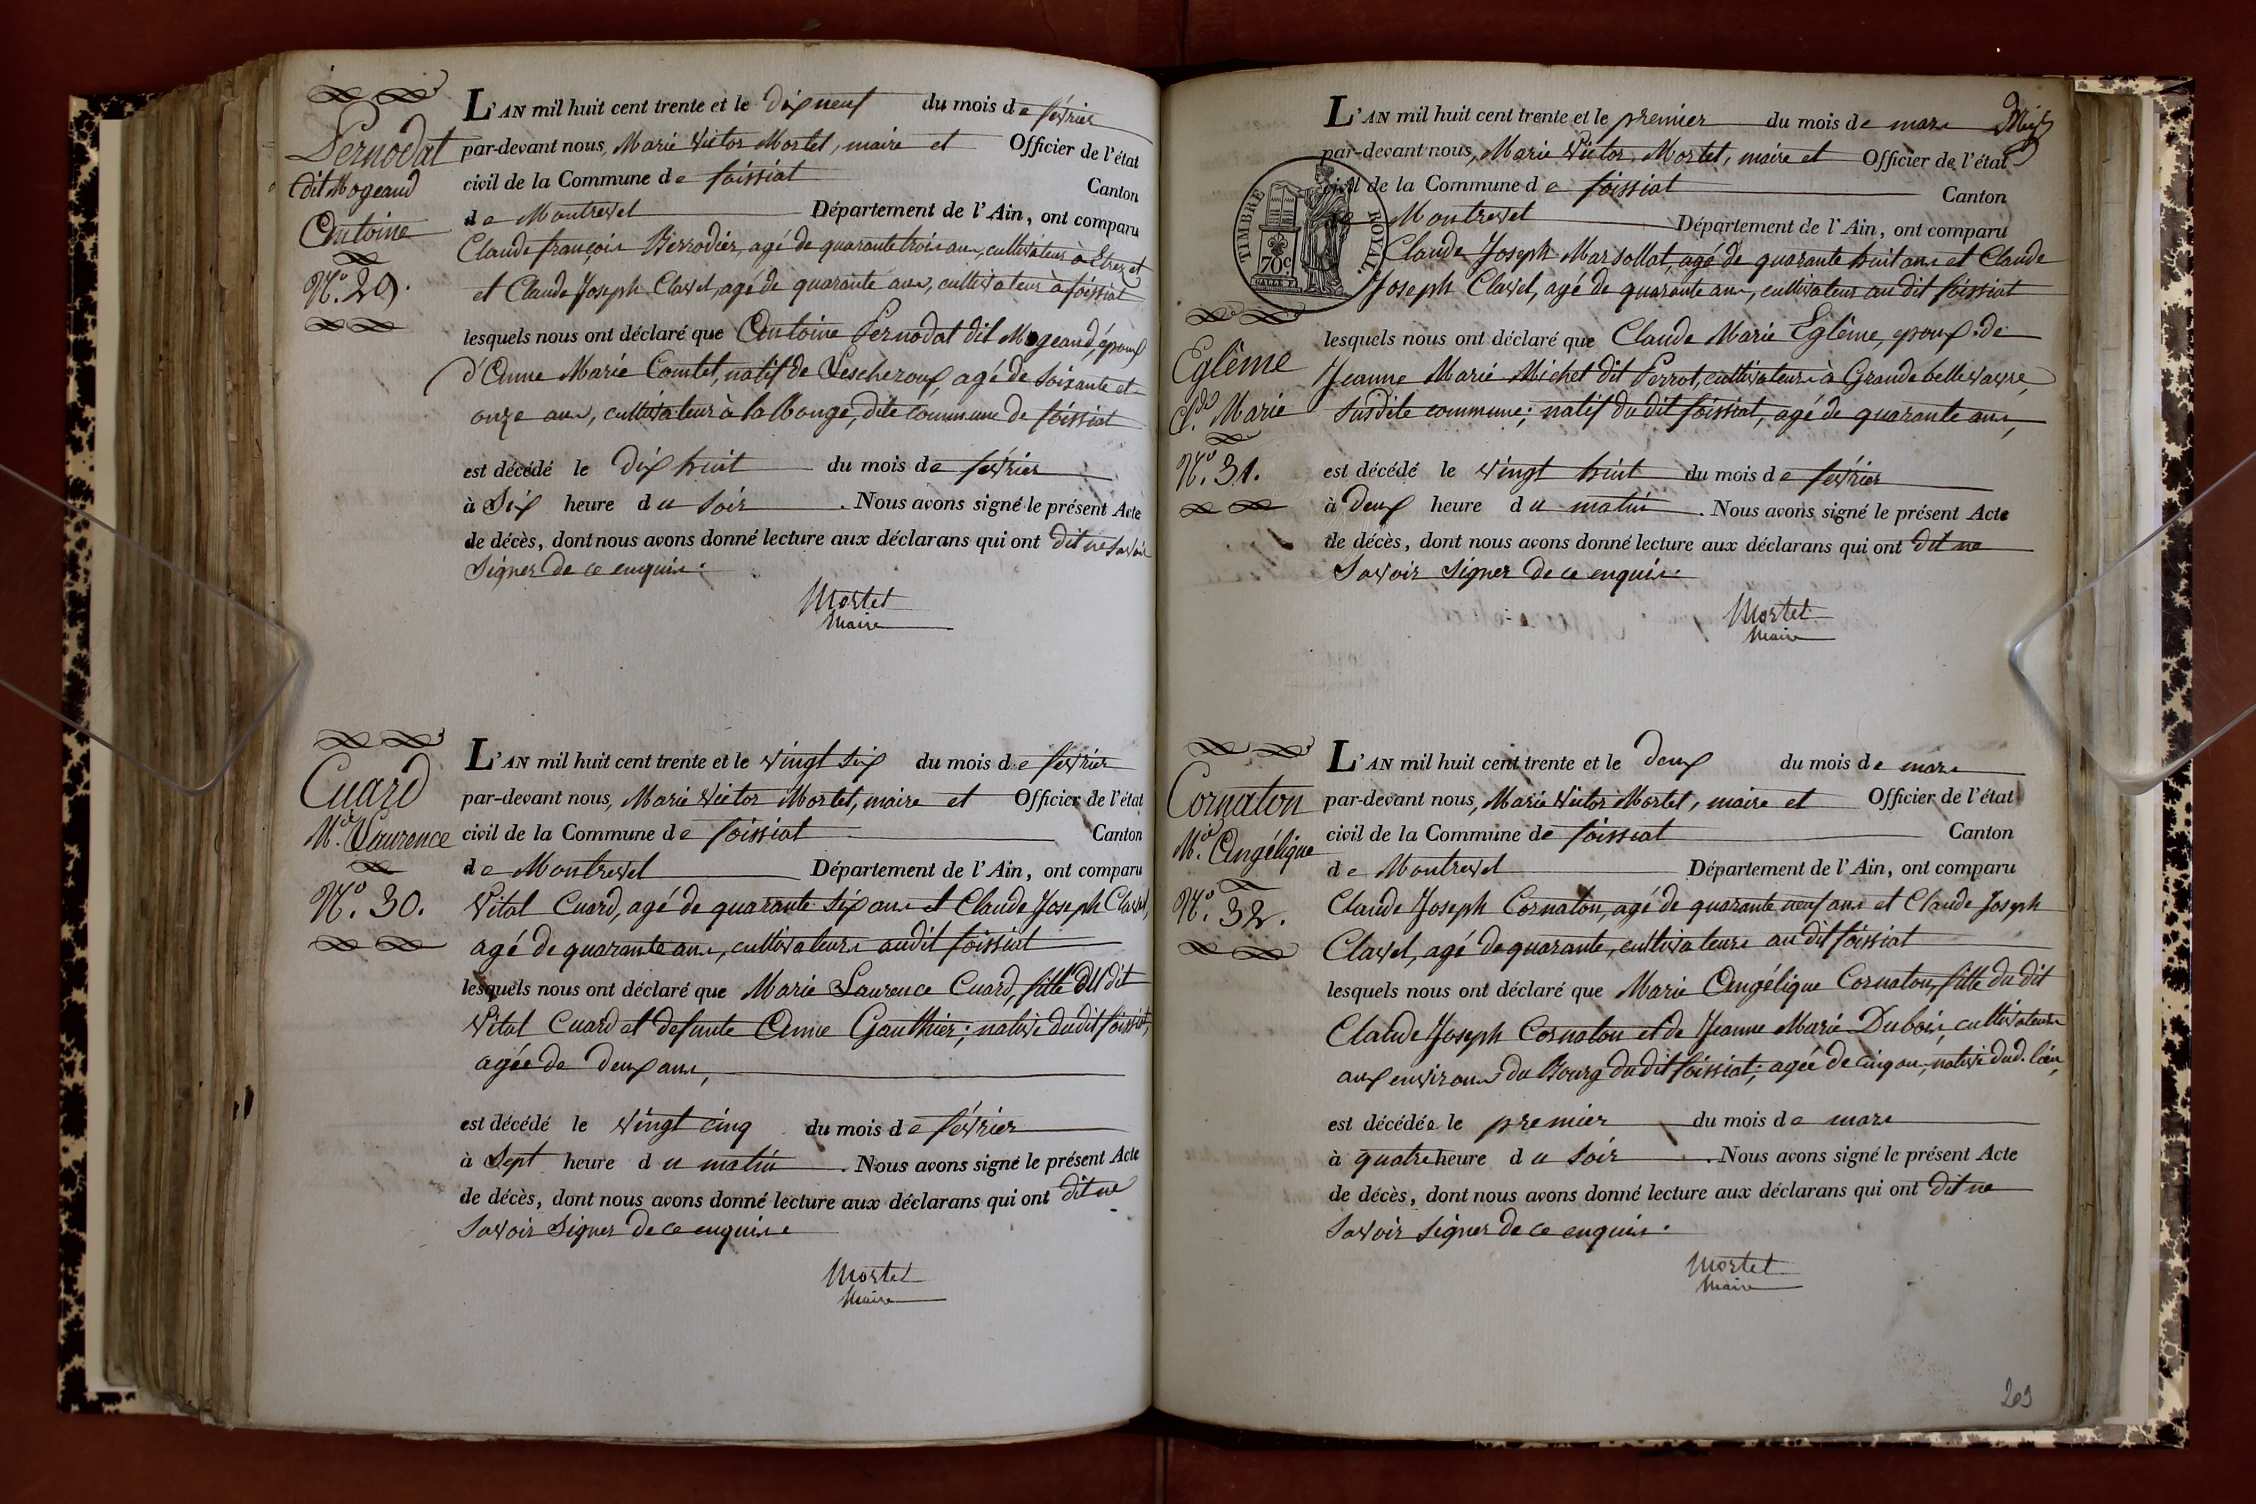 Pernodat
dit Mogeaud
Antoine
N.° 29.
L'AN mil huit cent trente et le dix neuf du mois de février
par-devant nous, Marie Victor Mortel, maire et Officier de l'état
civil de la Commune de foissiat Canton
de Montrevel Département de l'Ain, ont comparu
Claude françois Perrodier, agé de quarante trois ans, cultivateur à Etrez et
et Claude Joseph Clavel, agé de quarante ans, cultivateur à foissiat
lesquels nous ont déclaré que Antoine Pernodat dit Mogeaud, époux
d'Anne Marie Comtet, natif de Lescheroux, agé de soixante et
onze ans, cultivateur à la Monge, dite commune de foissiat
est décédé le dix huit du mois de février
à Six heure du soir . Nous avons signé le présent Acte
de décès, dont nous avons donné lecture aux déclarans qui ont dit ne savoir
signer de ce enquis.
Mortel
Maire
Cuard
M.ie Laurence
N.° 30.
L'AN mil huit cent trente et le vingt six du mois de février
par-devant nous, Marie Victor Mortel, maire et Officier de l'état
civil de la Commune de foissiat Canton
de Montrevel Département de l'Ain, ont comparu
Vital Cuard, agé de quarante six ans et Claude Joseph Clavel,
agé de quarante ans, cultivateurs audit foissiat
lesquels nous ont déclaré que Marie Laurence Cuard, fille du dit
Vital Cuard et defunte Anne Gauthier; native dudit foissiat,
agée de deux ans,
est décédé le vingt cinq du mois de février
à Sept heure du matin . Nous avons signé le présent Acte
de décès, dont nous avons donné lecture aux déclarans qui ont dit ne
savoir signer de ce enquis.
Mortel
Maire
TIMBRE ROYAL
70c
Eglême
C.de Marie
N.° 31.
L'AN mil huit cent trente et le premier du mois de mars
par-devant nous, Marie Victor Mortel, maire et Officier de l'état
civil de la Commune de foissiat Canton
de Montrevel Département de l'Ain, ont comparu
Claude Joseph Marsollat, agé de quarante huit ans et Claude
Joseph Clavel, agé de quarante ans, cultivateur au dit foissiat
lesquels nous ont déclaré que Claude Marie Eglême, époux de
Jeanne Marie Michel dit Perrot, cultivateurs à Grande bellevavre,
susdite commune; natif du dit foissiat, agé de quarante ans,
est décédé le vingt huit du mois de février
à deux heure du matin . Nous avons signé le présent Acte
de décès, dont nous avons donné lecture aux déclarans qui ont dit ne
Savoir signer de ce enquis.
Mortel
Maire
Cornaton
M.ie Angélique
N.° 32.
L'AN mil huit cent trente et le deux du mois de mars
par-devant nous, Marie Victor Mortel, maire et Officier de l'état
civil de la Commune de foissiat Canton
de Montrevel Département de l'Ain, ont comparu
Claude Joseph Cornaton, agé de quarante neuf ans et Claude Joseph
Clavel, agé de quarante, cultivateurs au dit foissiat
lesquels nous ont déclaré que Marie Angélique Cornaton, fille du dit
Claude Joseph Cornaton et de Jeanne Marie Dubois, cultivateurs
aux environs du Bourg du dit foissiat; agée de cinq ans, native dud. lieu,
est décédée le premier du mois de mars
à quatre heure du soir . Nous avons signé le présent Acte
de décès, dont nous avons donné lecture aux déclarans qui ont dit ne
savoir signer de ce enquis.
Mortel
Maire
203